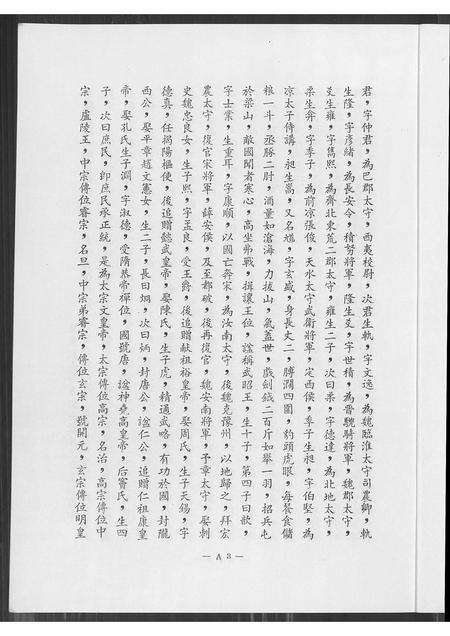 君，字仲君，為巴郡太守，西夷校尉，次君生軌，字文逸，為魏臨淮太守司農卿，軌
生隆，字彥緒，為長安令，積弩將軍，隆生艾，字世積，為晉驍騎將軍，魏郡太守，
艾生雍，字雋熙，為濟北東莞二郡太守，雍生二子，次曰柔，字德達，為北地太守，
柔生弇，字季子，為前涼張俊，天水太守武衛將軍，定西侯，弇子生昶，字伯堅，為
涼太子侍講，昶生暠，又名馗，字玄盛，身長丈二，膊濶四圍，豹頭虎眼，每餐食儲
粮一斗，丞豚二肘，酒量如滄海，力拔山，氣蓋世，戲劍鉞二百斤如舉一羽，招兵屯
於梁山，敵國聞者寒心，高坐弟戰，揖讓王位，諡稱武昭王，生十子，第四子曰歆，
字士業，生重耳，字康順，以國亡奔宋，為汝南太守，後魏克豫州，以地歸之，拜宗
農太守，復官宋將軍，薛安侯，及至都破，後再復官，魏安南將軍，予章太守，娶刺
史魏忠良女，生子熙，字孟良，受王爵，後追贈獻祖裕皇帝，娶周氏，生子天錫，字
德真，任揚陽樞使，後追贈懿武皇帝，娶陳氏，生子虎，精通武略，有功於國，封隴
西公，娶平章趙文憲女，生二子，長曰烱，次曰炳，封唐公，諡仁公，追贈仁祖康皇
帝，娶孔氏生子淵，字淑德，受隋恭帝禪位，國號唐，諡神堯高皇帝，后竇氏，生四
子，次曰庶民，即庶民承正統，是為太宗文皇帝，太宗傳位高宗，名治，高宗傳位中
宗，盧陵王，中宗傳位睿宗，名旦，中宗弟睿宗，傳位玄宗，號開元，玄宗傳位明皇
— A 3 —